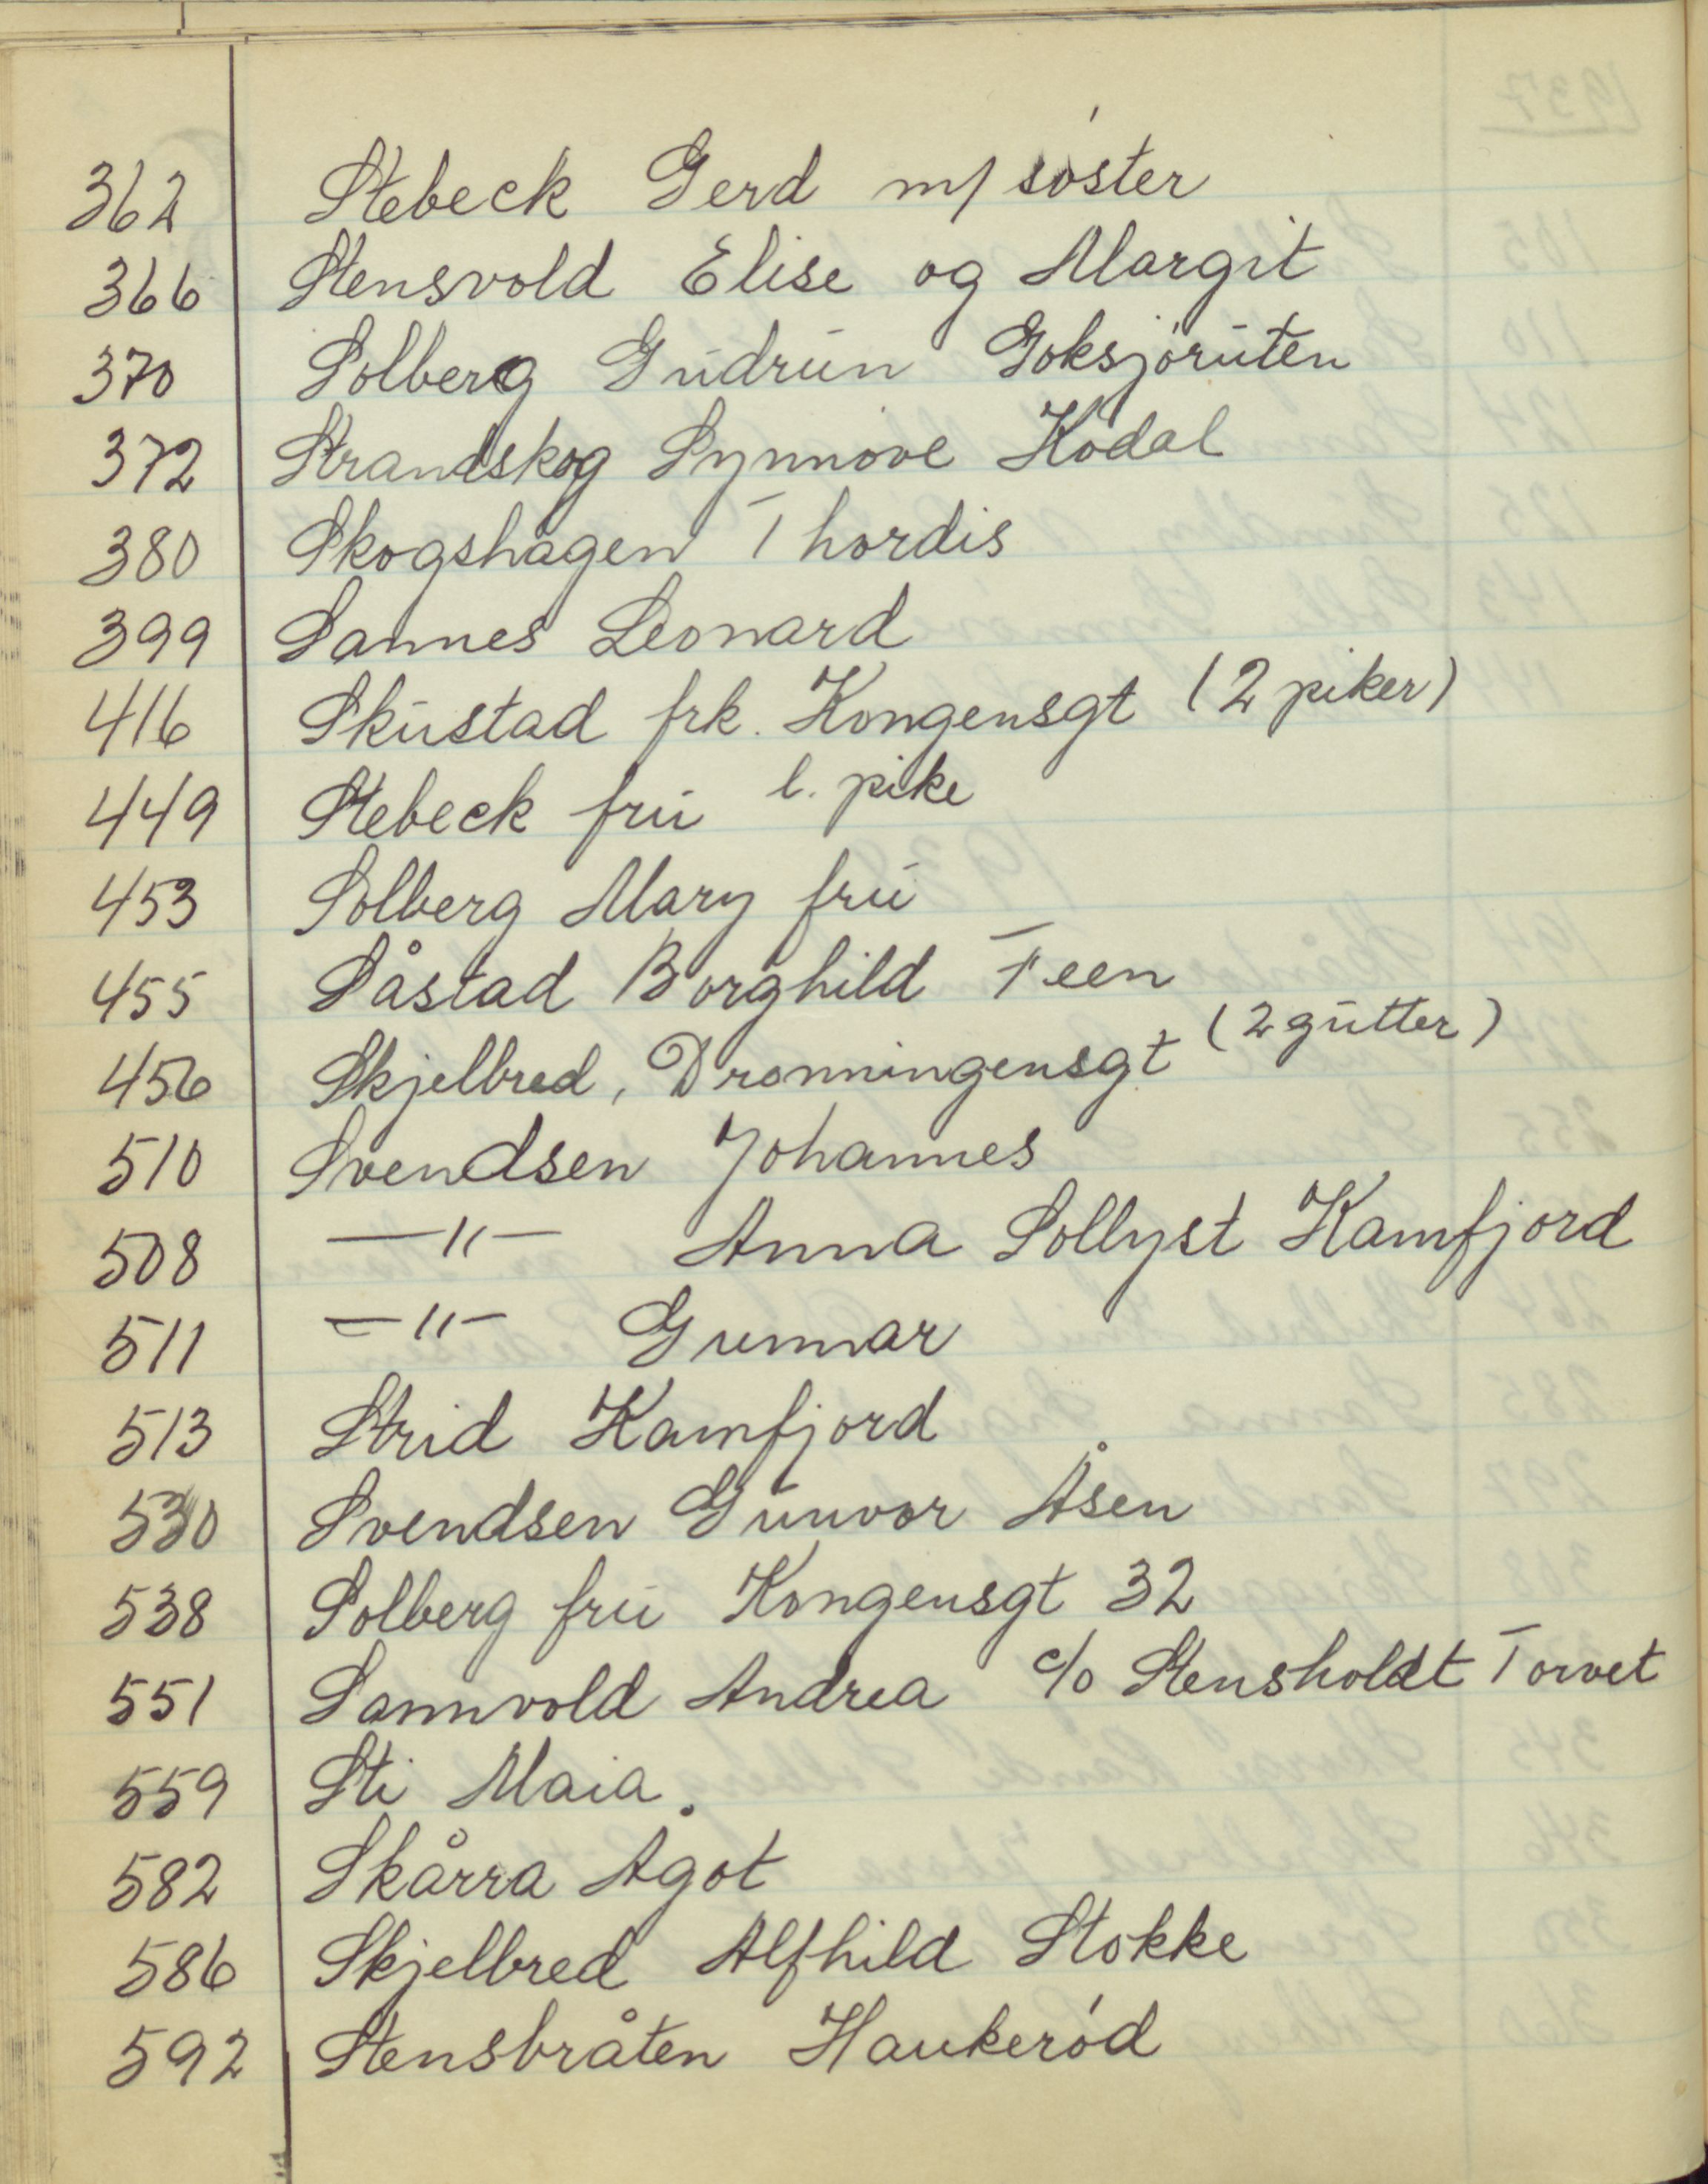 362 Stebeck Gerd m/ søster
366 Stensvold Elise og Margit
370 Solberg Gudrun Goksjøruten
372 Strandskog Synnøve Kodal
380 Skogshagen Thordis
399 Sannes Leonard
416 Skustad frk. Kongensgt (2 piker)
449 Stebeck fru l. pike
453 Solberg Mary fru
455 Såstad Borghild Feen
456 Skjelbred, Dronningensgt (2 gutter)
510 Svendsen Johannes
508 —"— Anna Sollyst Kamfjord
511 —"— Gunnar
513 Strid Kamfjord
530 Svendsen Gunvor Åsen
538 Solberg fru Kongensgt 32
551 Sannvold Andrea c/o Stensholdt Torvet
559 Sti Maia.
582 Skårra Agot
586 Skjelbred Alfhild Stokke
592 Stensbråten Haukerød